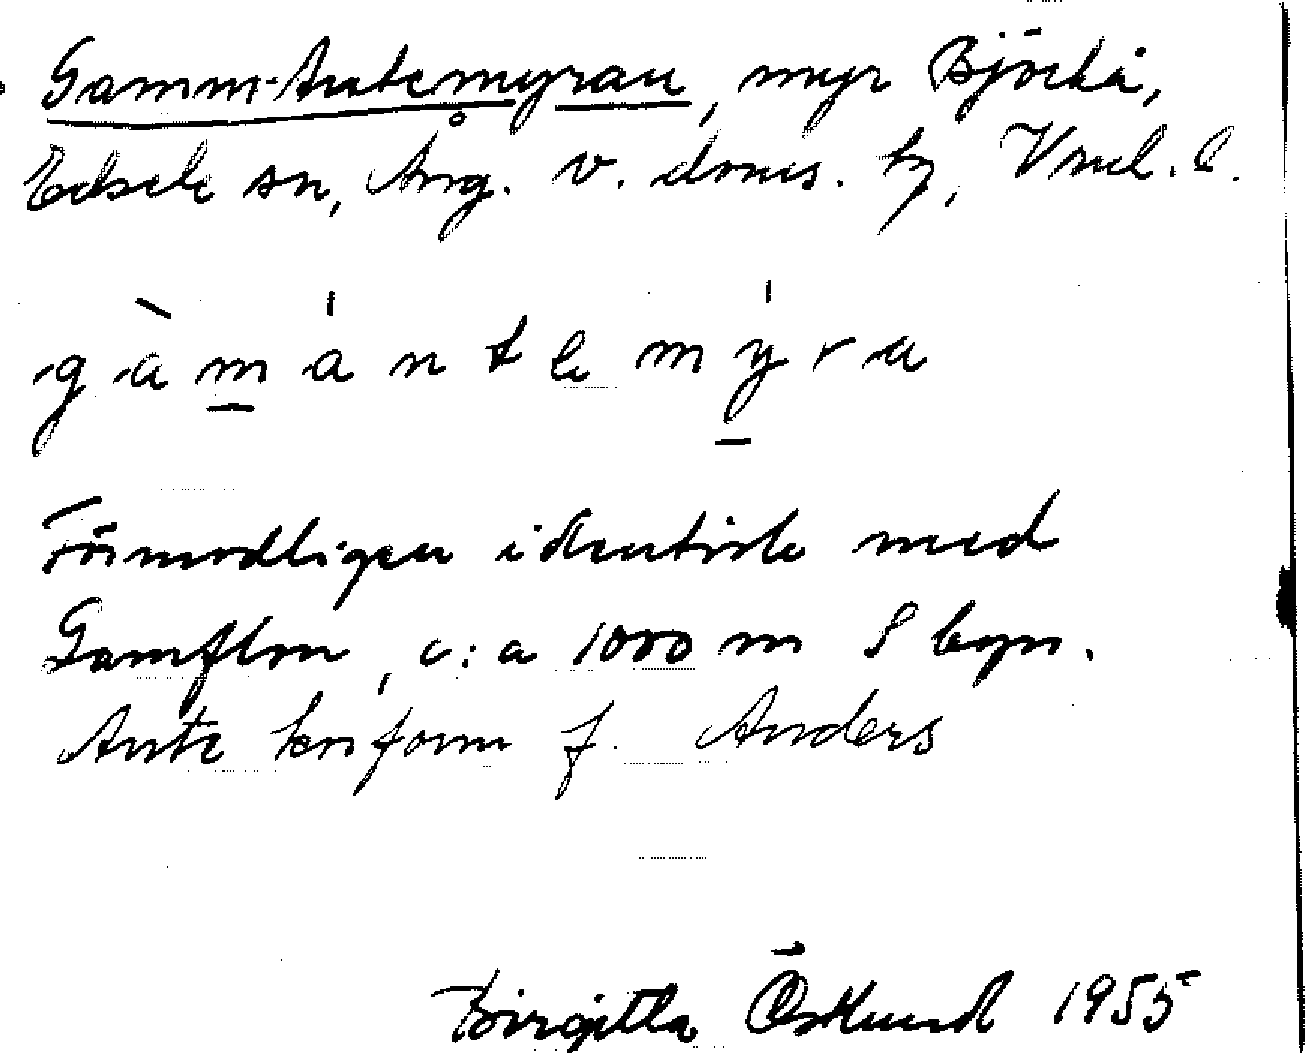 Gamm-Antemyran, myr Björkå,
Edsele sn, Ång. v. doms. by, Vnl. l.
gàmántemýra
Förmodligen identisk med
Gamflon, c:a 1000 m S byn.
Ante kortform f. Anders
Birgitta Östlund 1955